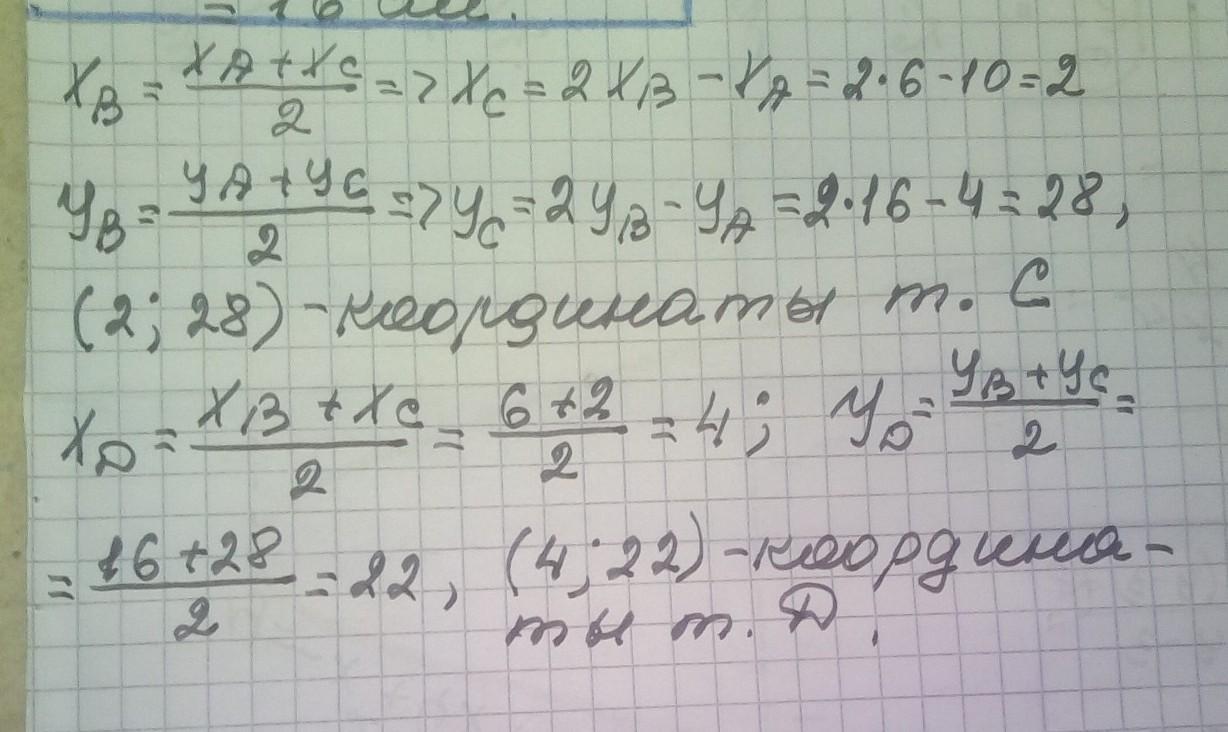 = 16 см.
x_B = (x_A + x_C)/2 => x_C = 2x_B - x_A = 2·6 - 10 = 2
y_B = (y_A + y_C)/2 => y_C = 2y_B - y_A = 2·16 - 4 = 28,
(2; 28) - координаты т. C
x_D = (x_B + x_C)/2 = (6 + 2)/2 = 4; y_D = (y_B + y_C)/2 =
= (16 + 28)/2 = 22, (4; 22) - координа-
ты т. D.